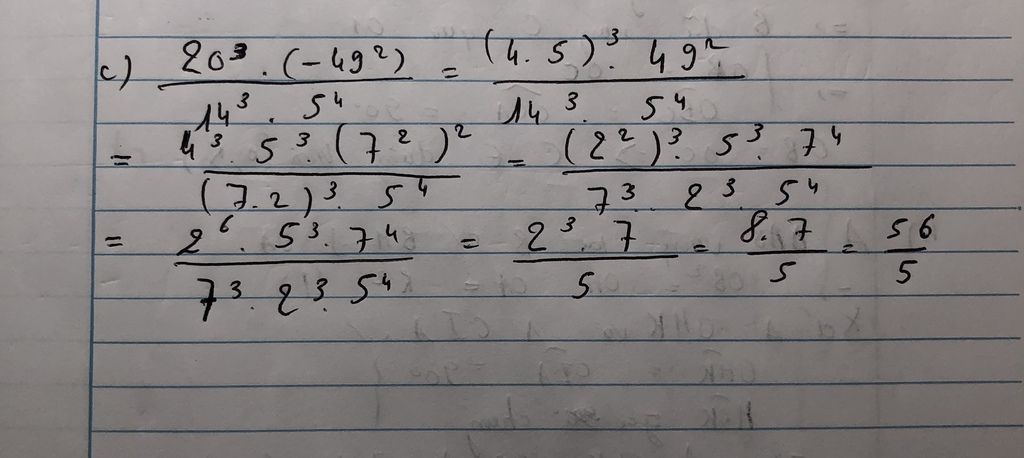 c) \frac{20^3 . (-49^2)}{14^3 . 5^4} = \frac{(4.5)^3 . 49^2}{14^3 . 5^4}
= \frac{4^3 . 5^3 . (7^2)^2}{(7.2)^3 . 5^4} = \frac{(2^2)^3 . 5^3 . 7^4}{7^3 . 2^3 . 5^4}
= \frac{2^6 . 5^3 . 7^4}{7^3 . 2^3 . 5^4} = \frac{2^3 . 7}{5} = \frac{8.7}{5} = \frac{56}{5}